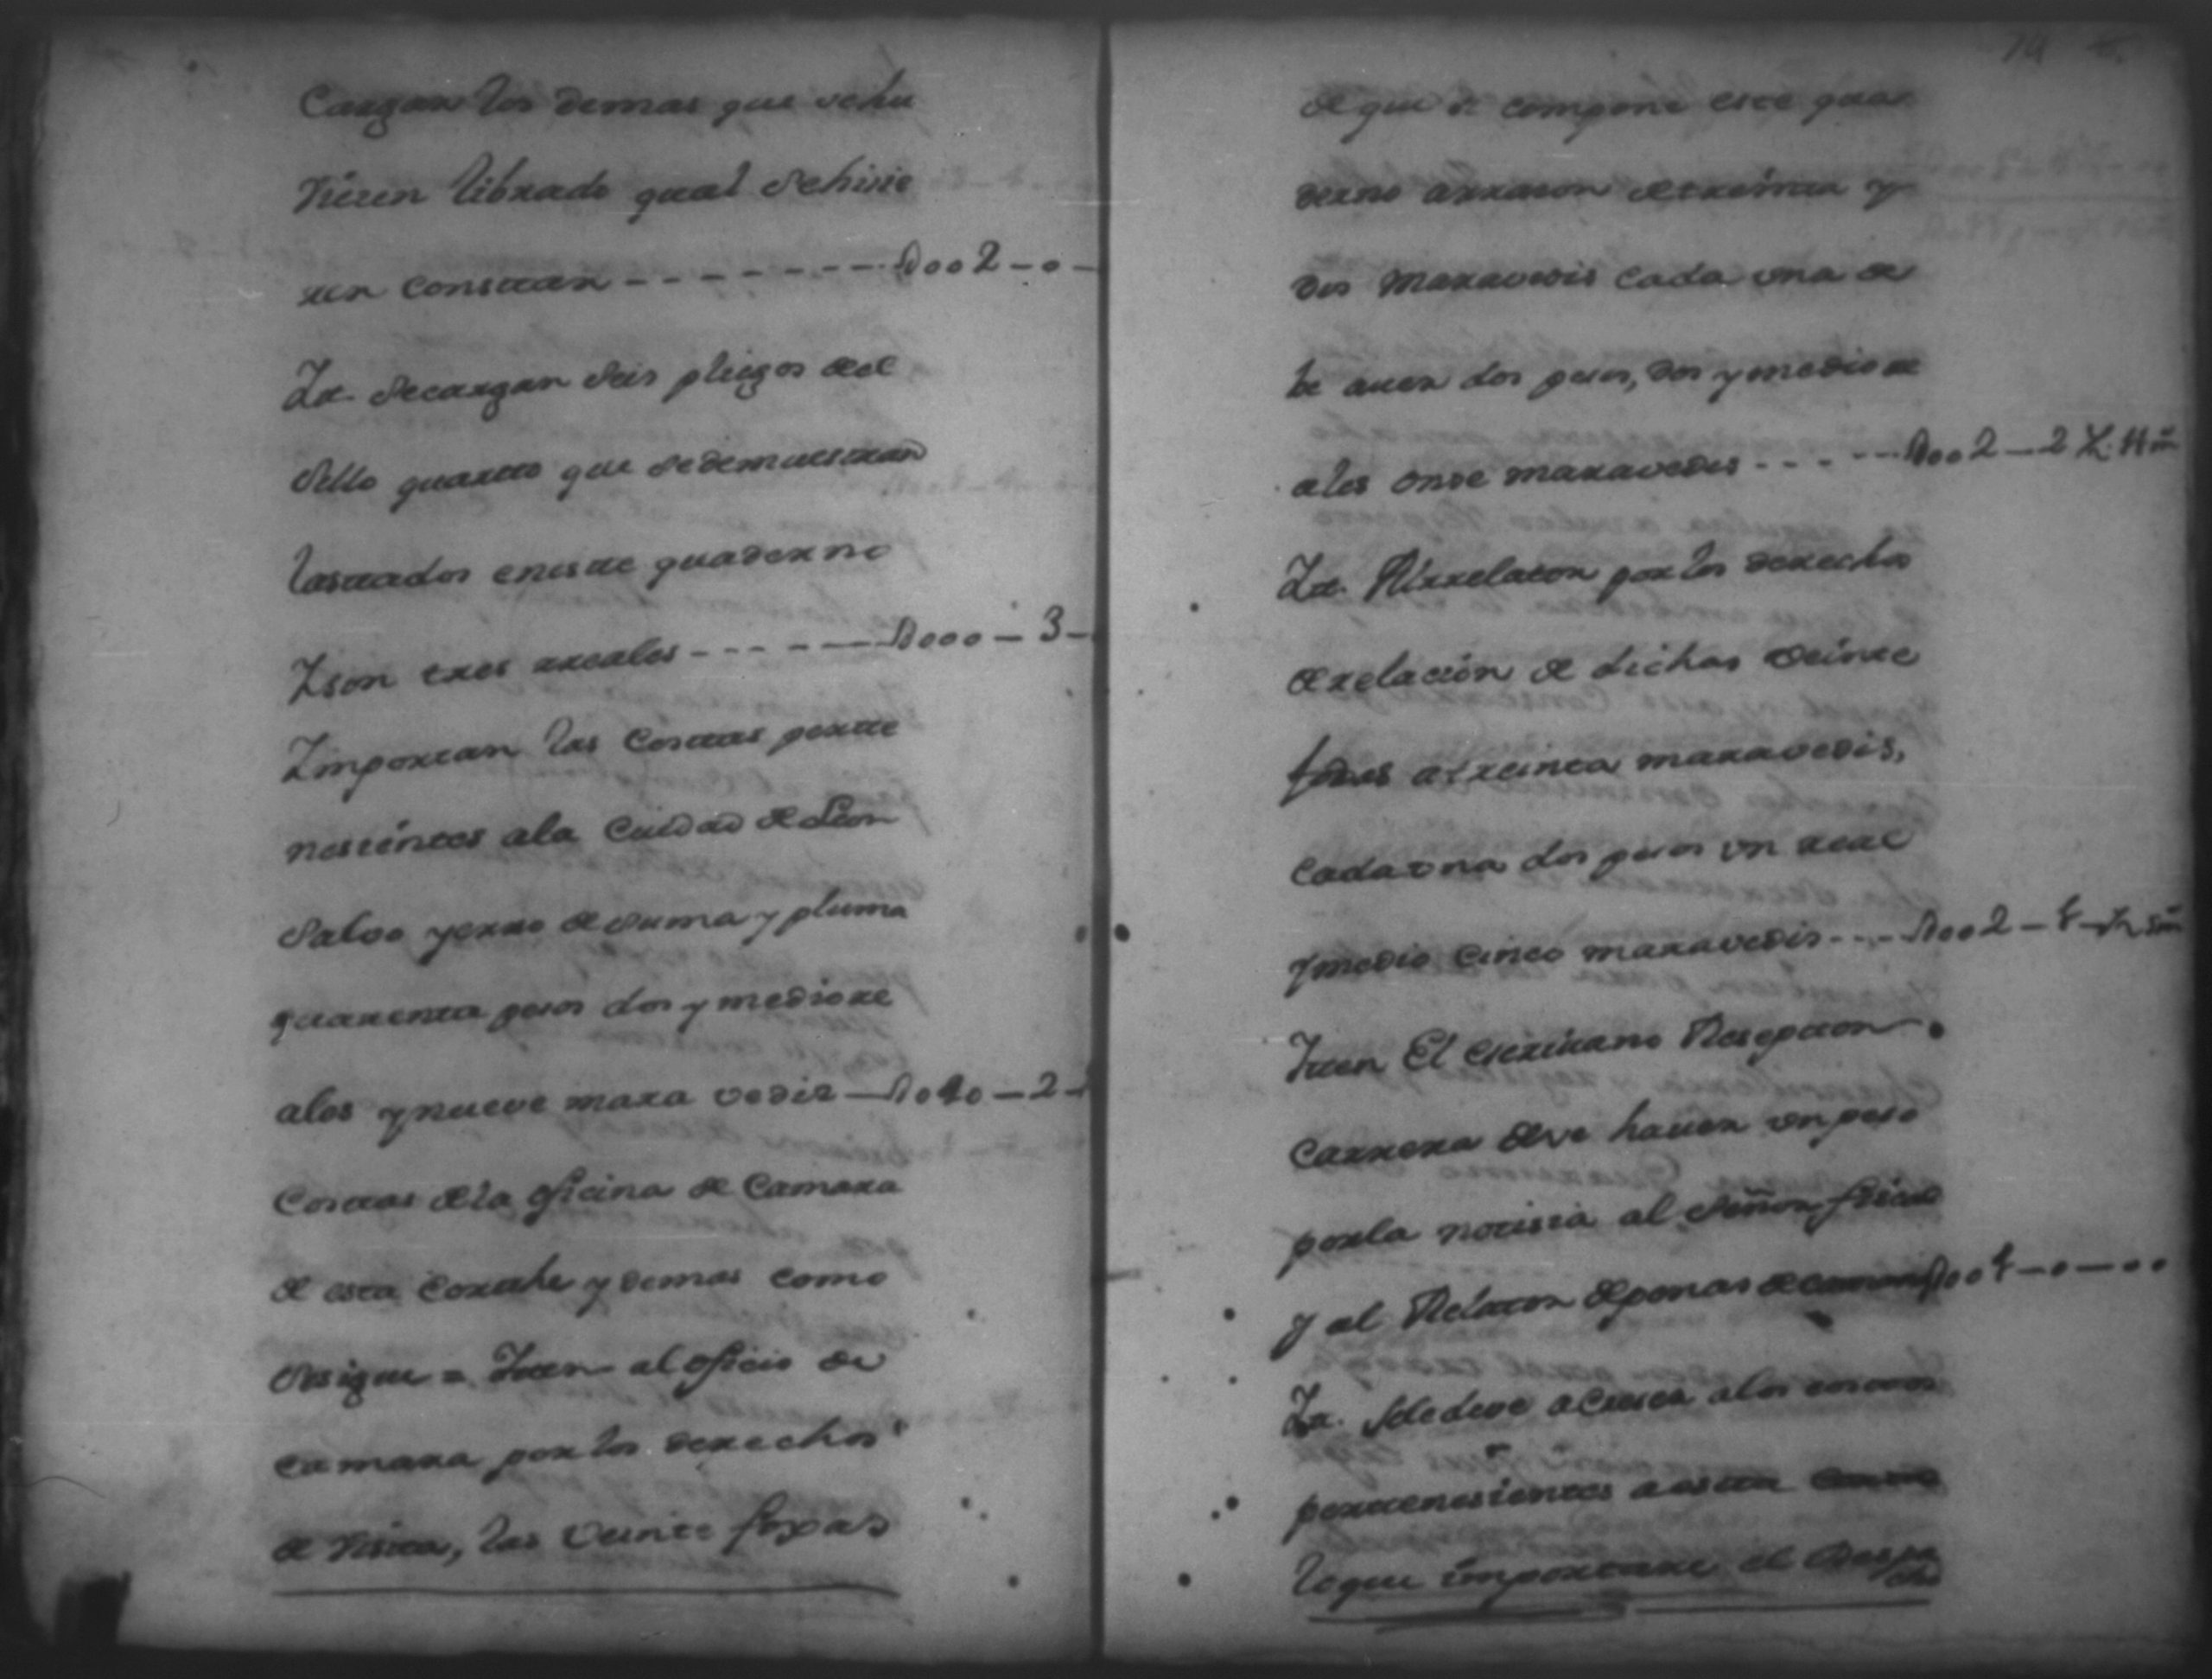 Cargan los demas que sehu
vieren librado qual sehisie
ren constar - - - - - - - - D002 - 0 -
It. Secargan seis pliegos del
sello quarto que sedemuestran
lastados eneste quaderno
Y son tres rreales - - - - - - D000 - 3 -
Y importan las Costas perte
nesientes ala Ciudad de Leon
salvo yerro de suma y pluma
quarenta pesos dos y medio re
ales y nueve mara vedis - D040 - 2 -
Costas dela oficina de Camara
de esta Corte y demas como
se sigue = Iten al oficio de
camara por los derechos
de vista, las veinte foxas
de que se compone este qua
derno arrason de treinta y
dos maravedis cada una de
be aver dos pesos, dos y medio re
ales onse maravedis - - - - - D002 - 2 ½ 11 m
It. Al rrelator por los derechos
de relacion de dichas veinte
foxas a treinta maravedis,
cada una dos pesos un real
y medio cinco maravedis - - - D002 - 1 - ½ 5 m
Iten El escrivano Reseptor
Carrera deve haver un peso
por la notisia al Señor fiscal
y al Relator de penas de camara D001 - 0 - 00
It. Sele deve acreser alas costas
pertenesientes a esta
lo que importare el Despa
cho